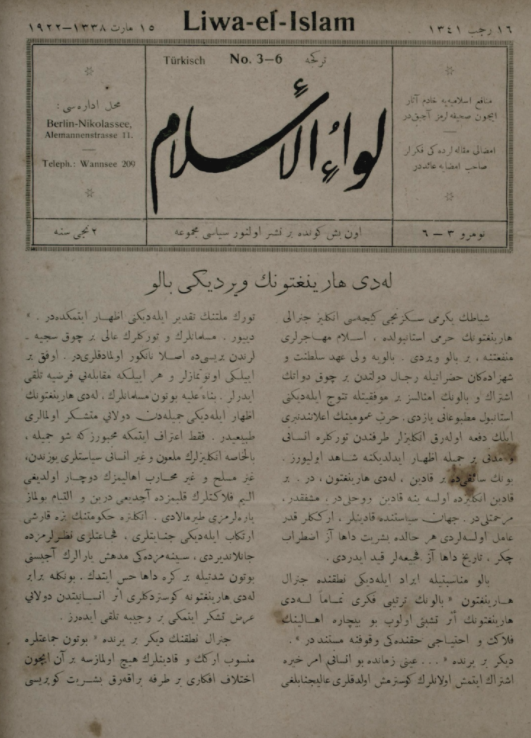 ١٦ رجب ١٣٤١
Liwa-el-Islam
١٥ مارت ١٣٣٨—١٩٢٢
منافع اسلاميه يه خادم آثار
ايچون صحيفه لرمز آچيقدر
امضالى مقاله لرده كى فكرلر
صاحب امضايه عائددر
Türkisch No. 3–6 تركجه
لواء الأسلام
محل اداره سى :
Berlin-Nikolassee,
Alemannenstrasse 11.
Teleph.: Wannsee 200
نومرو ٣ — ٦
اون بش كونده بر نشر اولنور سياسى مجموعه
٢نجى سنه
لەدى هارينغتونك ويرديكى بالو
شباطك يكرمى سكزنجى كيجه سى انكليز جنرالى
هارينغتونك حرمى استانبولده ، اسلام مهاجرلرى
منفعتنه ، بر بالو ويردى . بالويه ولى عهد سلطنت و
شهزادكان حضراتيله رجال دولتدن بر چوق ذواتك
اشتراك و بالونك امثالسز بر موفقيتله نتوج ايله ديكى
استانبول مطبوعاتى يازدى . حرب عموميتك اعلاننديرى
ايلك دفعه اوله رق انكليزلر طرفندن توركلره انسانى
و مدنى بر جمله اظهار ايدلديكنه شاهد اوليورز .
بونك سائقى ده بر قادين ، لەدى هارينغتون ، در . بر
قادين انكليزده اولسه ينه قادين روحلى در ، مشفقدر ،
مرحمتلى در . جهان سياستنده قادينلر ، ارككلر قدر
عامل اولسه لردى هر حالده بشريت داها آز اضطراب
چكر ، تاريخ داها آز فجيعه لر قيد ايدردى .
بالو مناسبتيله ايراد ايله ديكى نطقنده جنرال
هارينغتون « بالونك ترتيبى فكرى تماماً لەدى
هارينغتونك اثر تشبثى اولوب بو بيچاره اهالينك
فلاكت و احتياجى حقنده كى وقوفنه مستنددر » .
ديكر بر يرنده « ... عينى زمانده بو انسانى امر خيره
اشتراك ايتمش اولانلرك كوسترمش اولدقلرى عاليجنابلغى
تورك ملتنك تقدير ايله ديكنى اظهار ايتمكده در . »
دييور . مسلمانلرك و توركلرك عالى بر چوق سجيه
لرندن بريسى ده اصلا نانكور اولمادقلرى در . اوفق بر
ايلكى اونوتمازلر و هر ايلكه مقابله يى فرضيه تلقى
ايدرلر . بناءً عليه بوتون مسلمانلرك ، لەدى هارينغتونك
اظهار ايله ديكى جميله دن دولايى متشكر اولمالرى
طبيعيدر . فقط اعتراف ايتمكه مجبورز كه شو جميله ،
بالخاصه انكليزلرك ملعون و غير انسانى سياستلرى يوزندن،
غير مسلح و غير محارب اهاليمزك دوچار اولديغى
اليم فلاكتلرك قلبمزده آچديغى درين و التيام بولماز
ياره لرمزى طيرمالادى . انكلتره حكومتنك بزه قارشى
ارتكاب ايله ديكى جنايتلرى ، فجاعتلرى نظرلرمزده
جانلانديردى ، سينه مزده كى مدهش يارالرك آجيسنى
بوتون شدتيله بر كره داها حس ايتدك . بونكله برابر
لەدى هارينغتونه كوستردكلرى اثر انسانيتدن دولايى
عرض تشكر ايتمكى بر وجيبه تلقى ايده رز .
جنرال نطقنك ديكر بر يرنده « بوتون جماعتلره
منسوب اركك و قادينلرك هيچ اولمازسه بر آن ايچون
اختلاف افكارى بر طرفه براقه رق بشريت كوپريسى